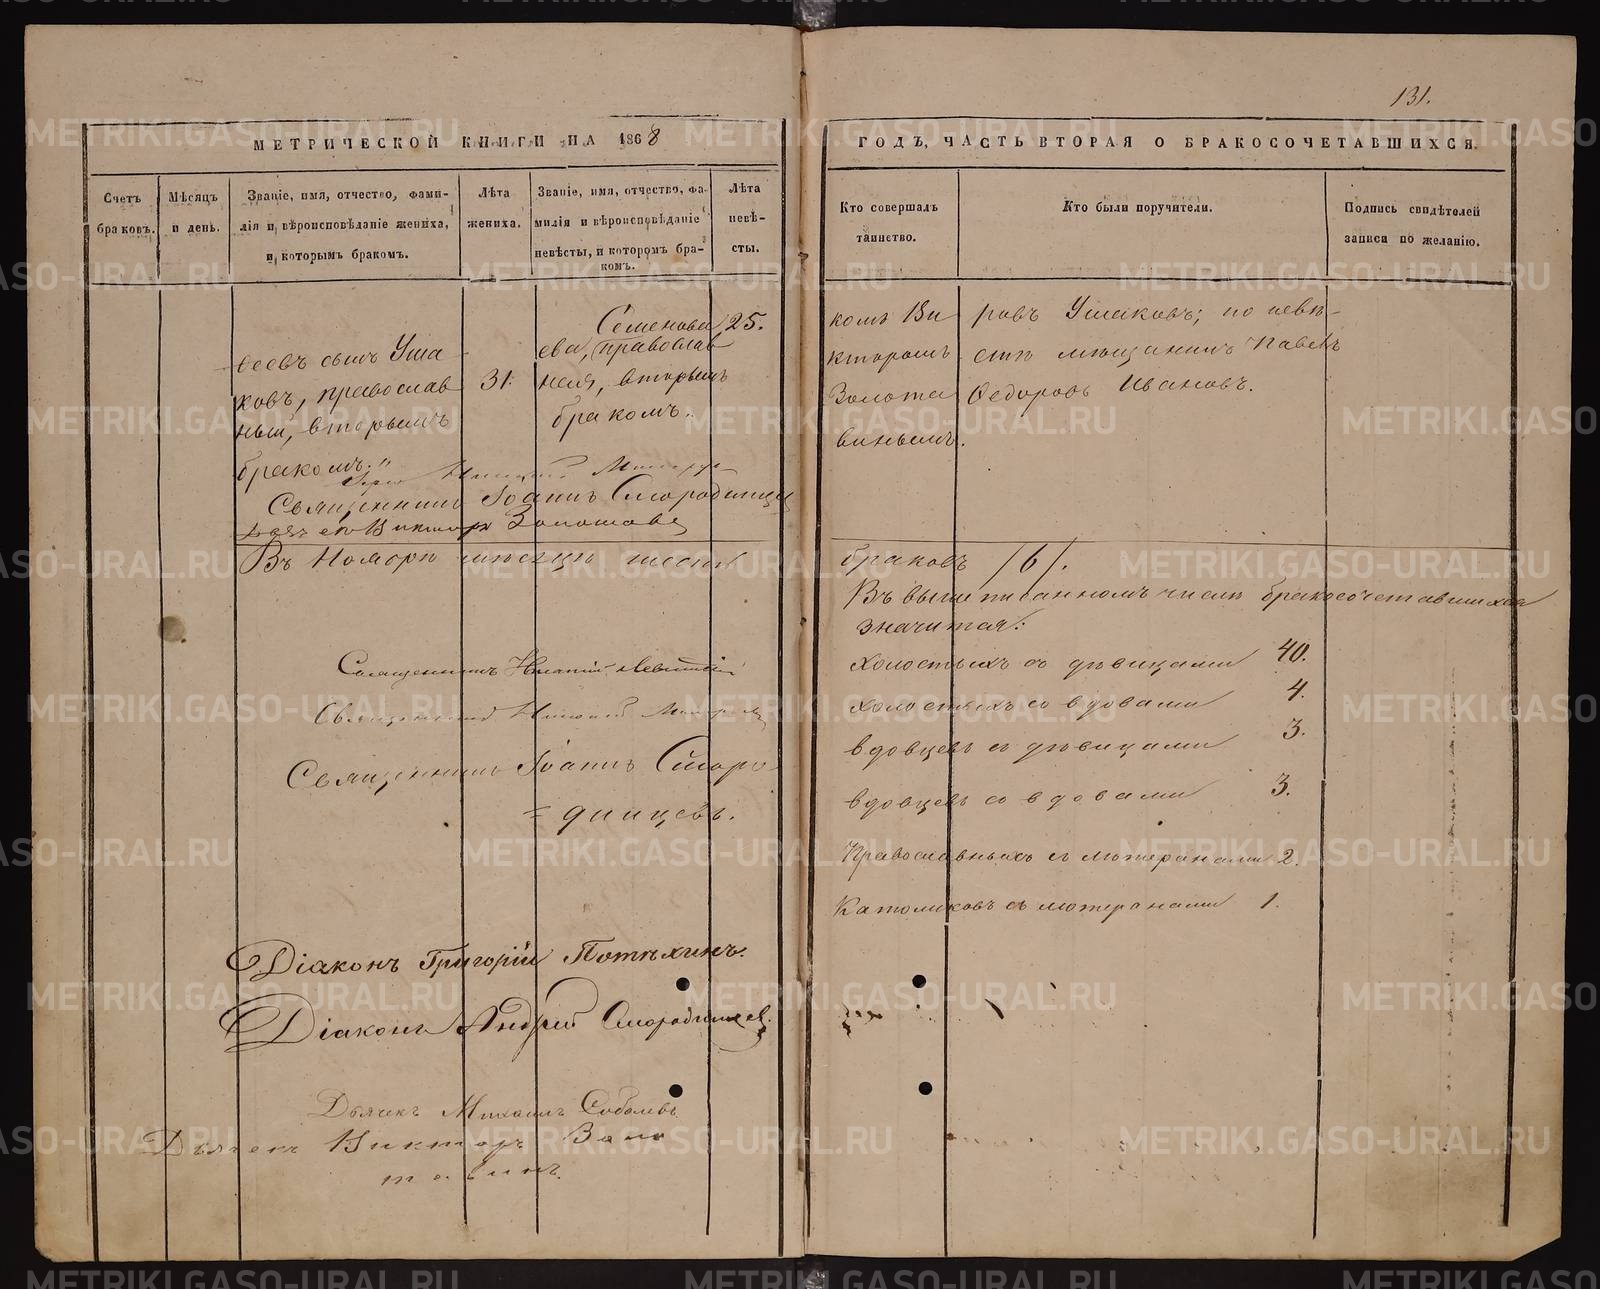 131.
МЕТРИЧЕСКОЙ КНИГИ НА 1868
ГОДЪ, ЧАСТЬ ВТОРАЯ О БРАКОСОЧЕТАВШИХСЯ.
Счетъ браковъ.
Мѣсяцъ и день.
Званіе, имя, отчество, фами-
лія и вѣроисповѣданіе жениха,
и которымъ бракомъ.
Лѣта
жениха.
Званіе, имя, отчество, фа-
милія и вѣроисповѣданіе
невѣсты, и которомъ бра-
комъ.
Лѣта
невѣ-
сты.
Кто совершалъ
таинство.
Кто были поручители.
Подпись свидѣтелей
записи по желанію.
сеевъ сынъ Уша
ковъ, православ
ный, вторымъ
бракомъ."
31.
Семенова
ева, православ
ная, вторымъ
бракомъ.
25.
комъ Ви
кторомъ
Золота
винымъ.
ровъ Ушаковъ; по невѣ-
стѣ мѣщанинъ Павелъ
Ѳедоровъ Ивановъ.
Священникъ Іоаннъ Смородинцевъ
Виктор Золотавин
Въ Ноябрѣ мѣсяцѣ шесть
браковъ /6/.
Въ вышеписанномъ числѣ бракосочетавшихся
значится:
холостыхъ съ дѣвицами 40.
холостыхъ со вдовами 4.
вдовцевъ съ дѣвицами 3.
вдовцевъ со вдовами 3.
Православныхъ съ лютеранами 2.
Католиковъ съ лютеранами 1.
Священникъ Игнатій Левитскій
Священникъ Николай
Священникъ Іоаннъ Сморо
= динцевъ.
Діаконъ Григорій Потѣхинъ.
Діаконъ Андрей Смородинцев.
Дьячекъ Михаилъ Соболевъ
Дьячекъ Викторъ Золо
тавинъ.
METRIKI.GASO-URAL.RU